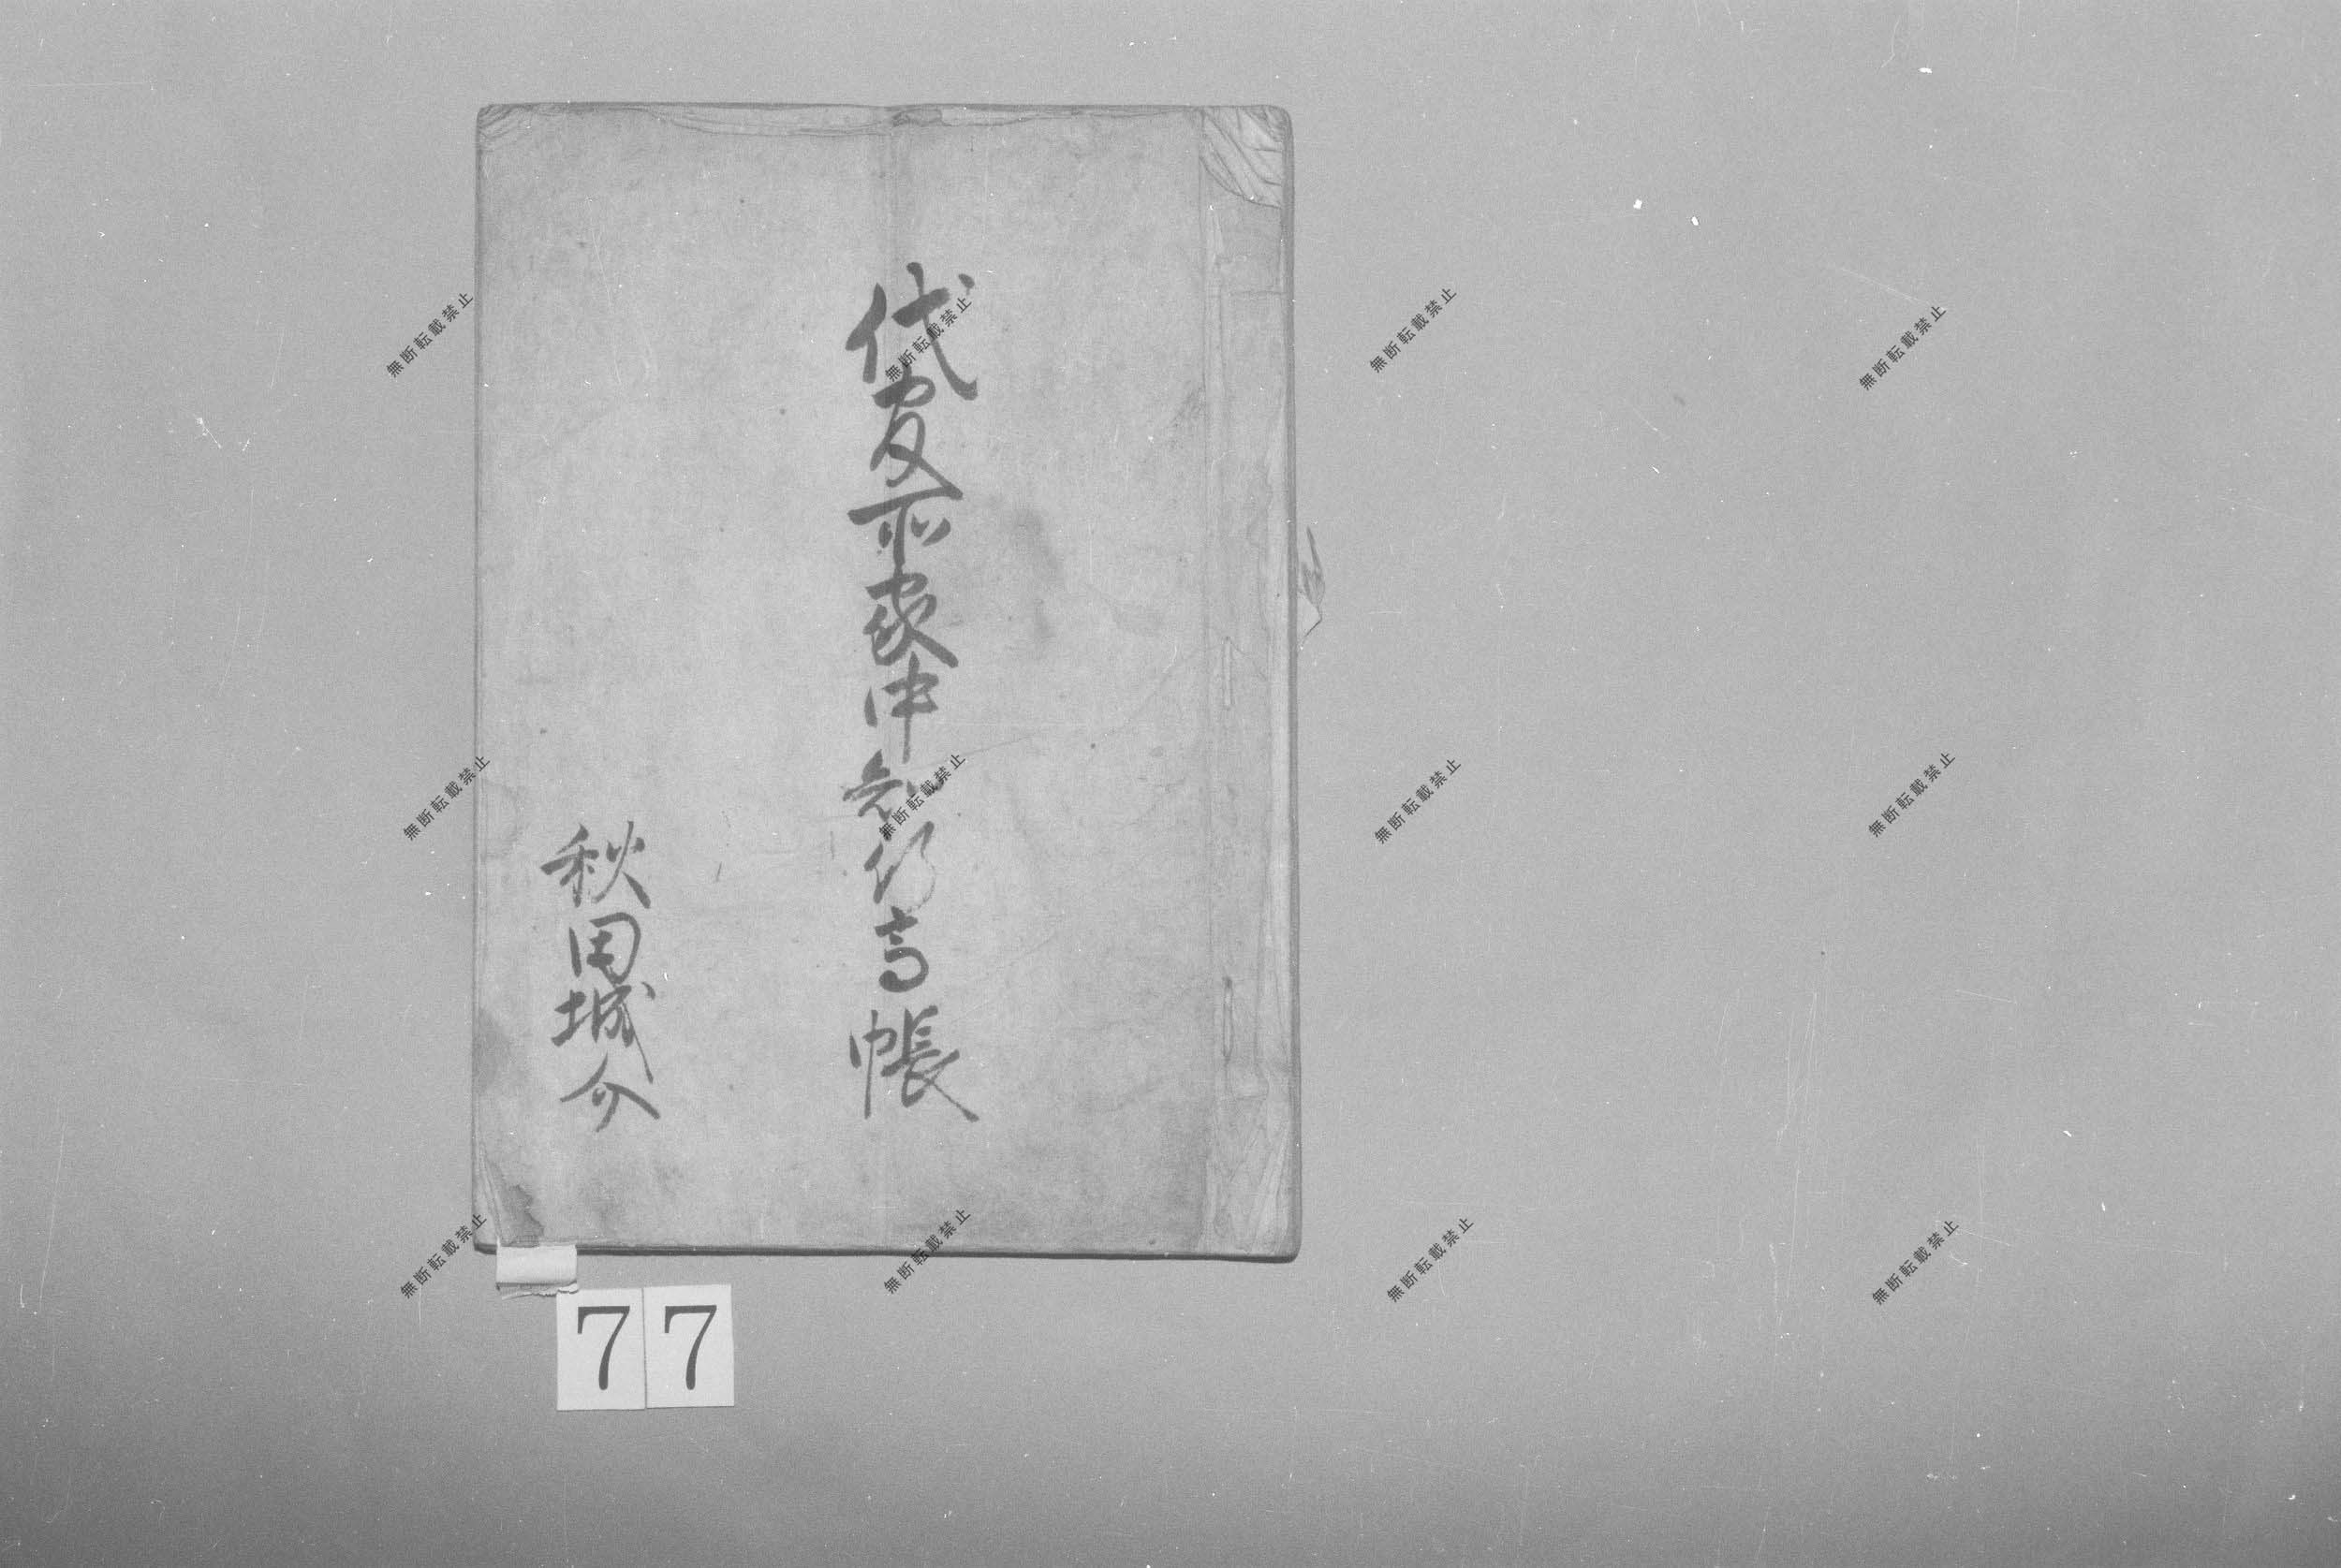 代官所家中知行高帳
秋田城介
77
無断転載禁止
無断転載禁止
無断転載禁止
無断転載禁止
無断転載禁止
無断転載禁止
無断転載禁止
無断転載禁止
無断転載禁止
無断転載禁止
無断転載禁止
無断転載禁止